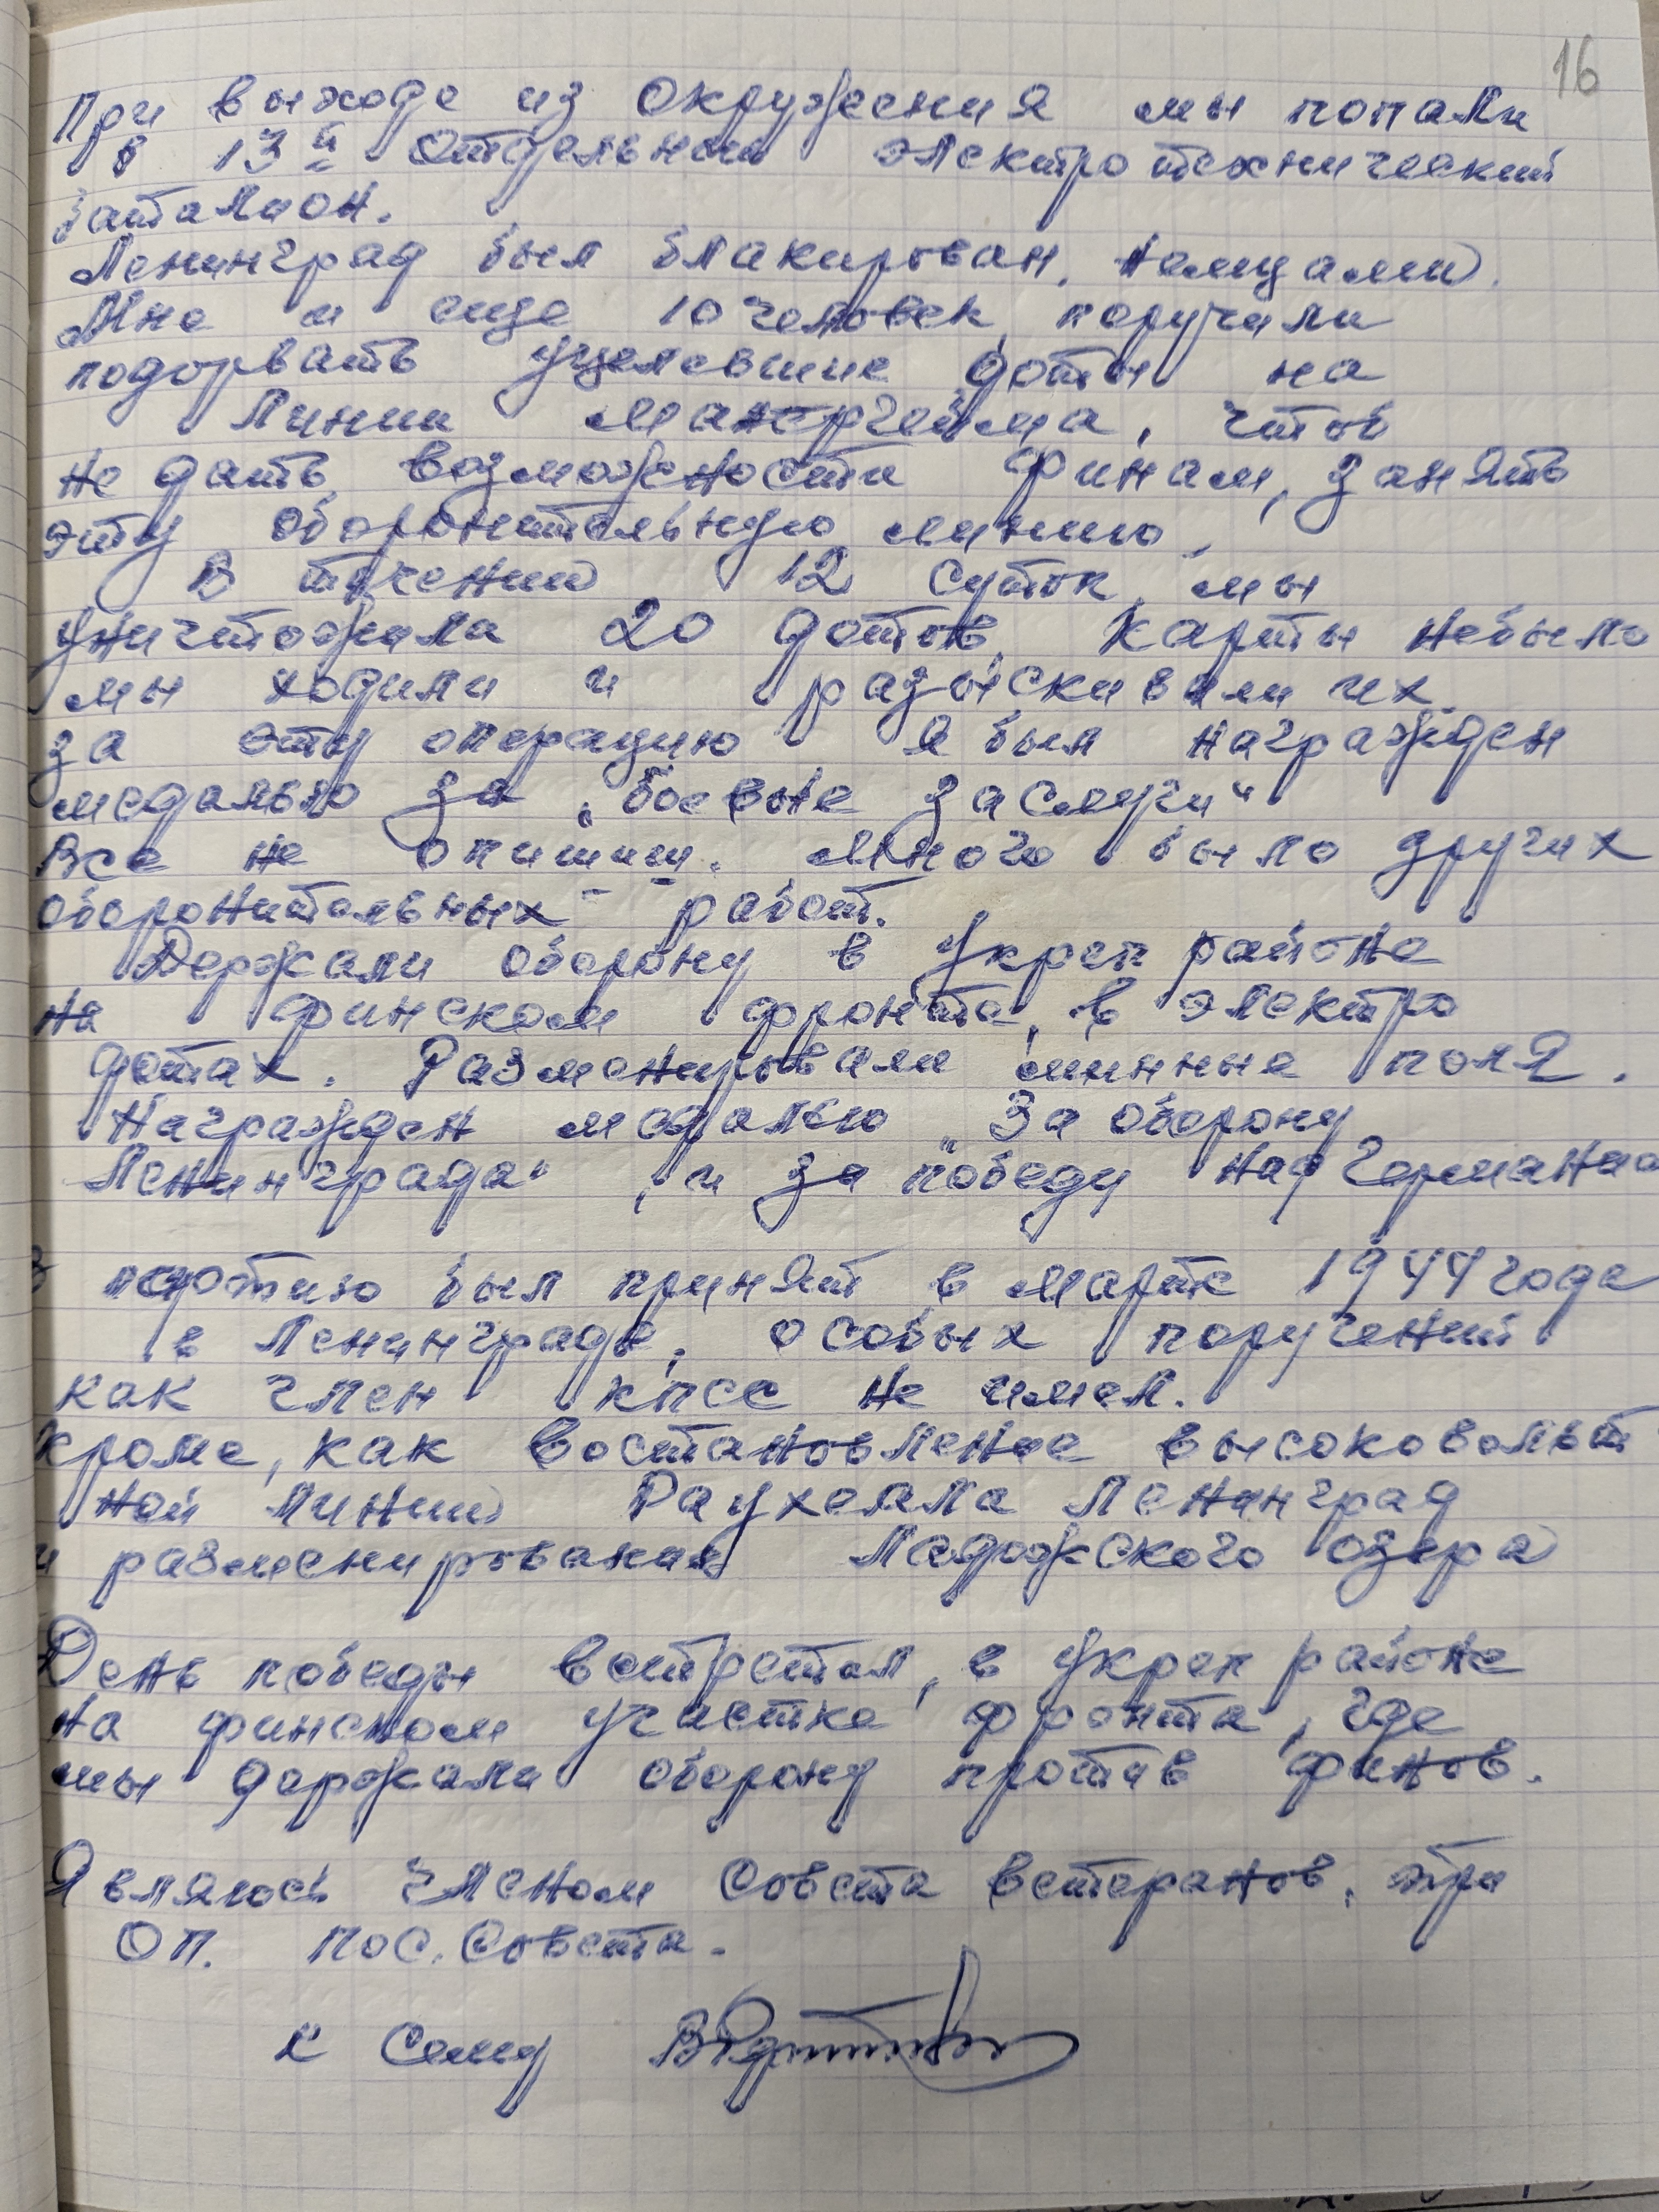 16
При выходе из Окружения мы попали
в 13й Отдельный электротехнический
баталион.
Ленинград был блакирован, немцами.
Мне и еще 10 человек поручили
подорвать уцелевшие доты на
Линии Манергейма, чтоб
не дать возможности финам, занять
эту оборонительную линию,
В течении 12 суток мы
уничтожили 20 дотов. Карты небыло
мы ходили и разыскивали их
за эту операцию я был награжден
медалью за „боевые заслуги“
Все не опишиш. Много было других
оборонительных работ.
Держали оборону в укреп районе
на финском фронте, в электро
дотах. Разменировали минные поля.
Награжден медалью „За оборону
Ленинграда“, и за победу над Германию
В партию был принят в марте 1944 года
в Ленинграде, особых поручений
как член кпсс не имел.
кроме, как востановление высоковольт
ной линии Раухеала Ленинград
и разменирования Ладожского озера
День победы встретил, в укреп районе
на финском участке фронта, где
мы держали оборону против финов.
Являюсь членом Совета ветеранов, при
ОП. пос. Совета.
К Сему